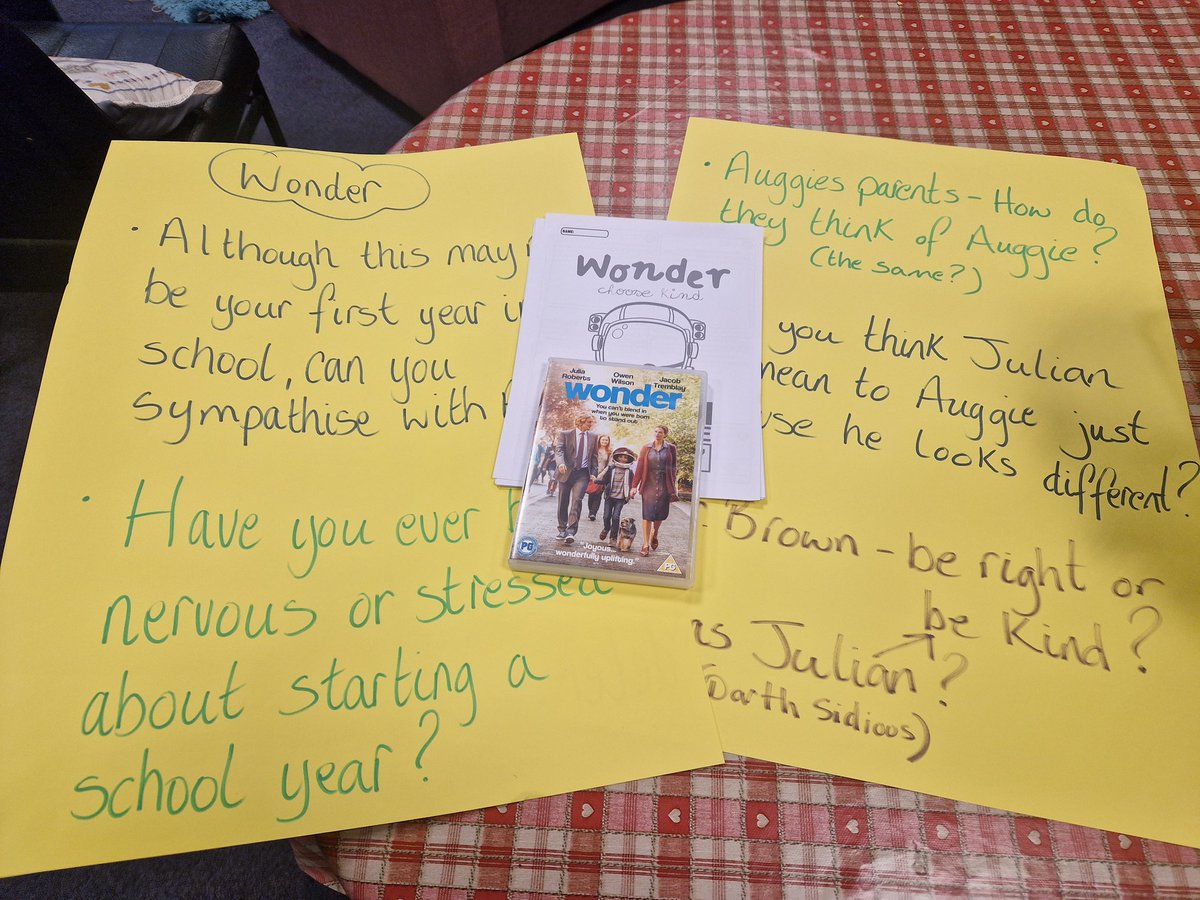 Wonder
• Although this may
be your first year in
school, can you
sympathise with
• Have you ever
nervous or stressed
about starting a
school year?
NAME:
Wonder
choose kind
Julia Roberts Owen Wilson Jacob Tremblay
wonder
You can't blend in
when you were born
to stand out
"Joyous...
wonderfully uplifting."
PG
PG
• Auggies parents - How do
they think of Auggie?
(the same?)
you think Julian
mean to Auggie just
he looks
different?
Brown - be right or
be Kind?
Julian?
(Darth Sidious)